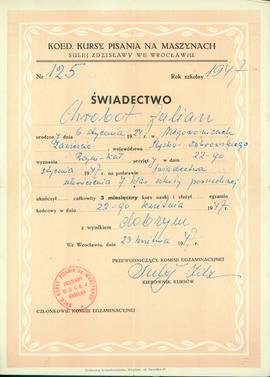 KOED. KURSY. PISANIA NA MASZYNACH
SULEJ ZDZISŁAWY WE WROCŁAWIU.
Nr 125 Rok szkolny 1947
ŚWIADECTWO
Chrobot Julian
urodzony 6 stycznia 1924 w
województwa Śląsko-Dąbrowskiego
wyznania Rzym-kat. przyjęty 22-go
stycznia 1947 na podstawie świadectwa
ukończenia 7 klas szkoły
ukończył całkowity 3 miesięczny kurs nauki i złożył egzamin
końcowy w dniu 22-go kwietnia 1947.
z wynikiem dobrym
We Wrocławiu, dnia 23 kwietnia 1947.
PRZEWODNICZĄCY KOMISJI EGZAMINACYJNEJ
Sulej Zdz
KIEROWNIK KURSÓW
CZŁONKOWIE KOMISJI EGZAMINACYJNEJ